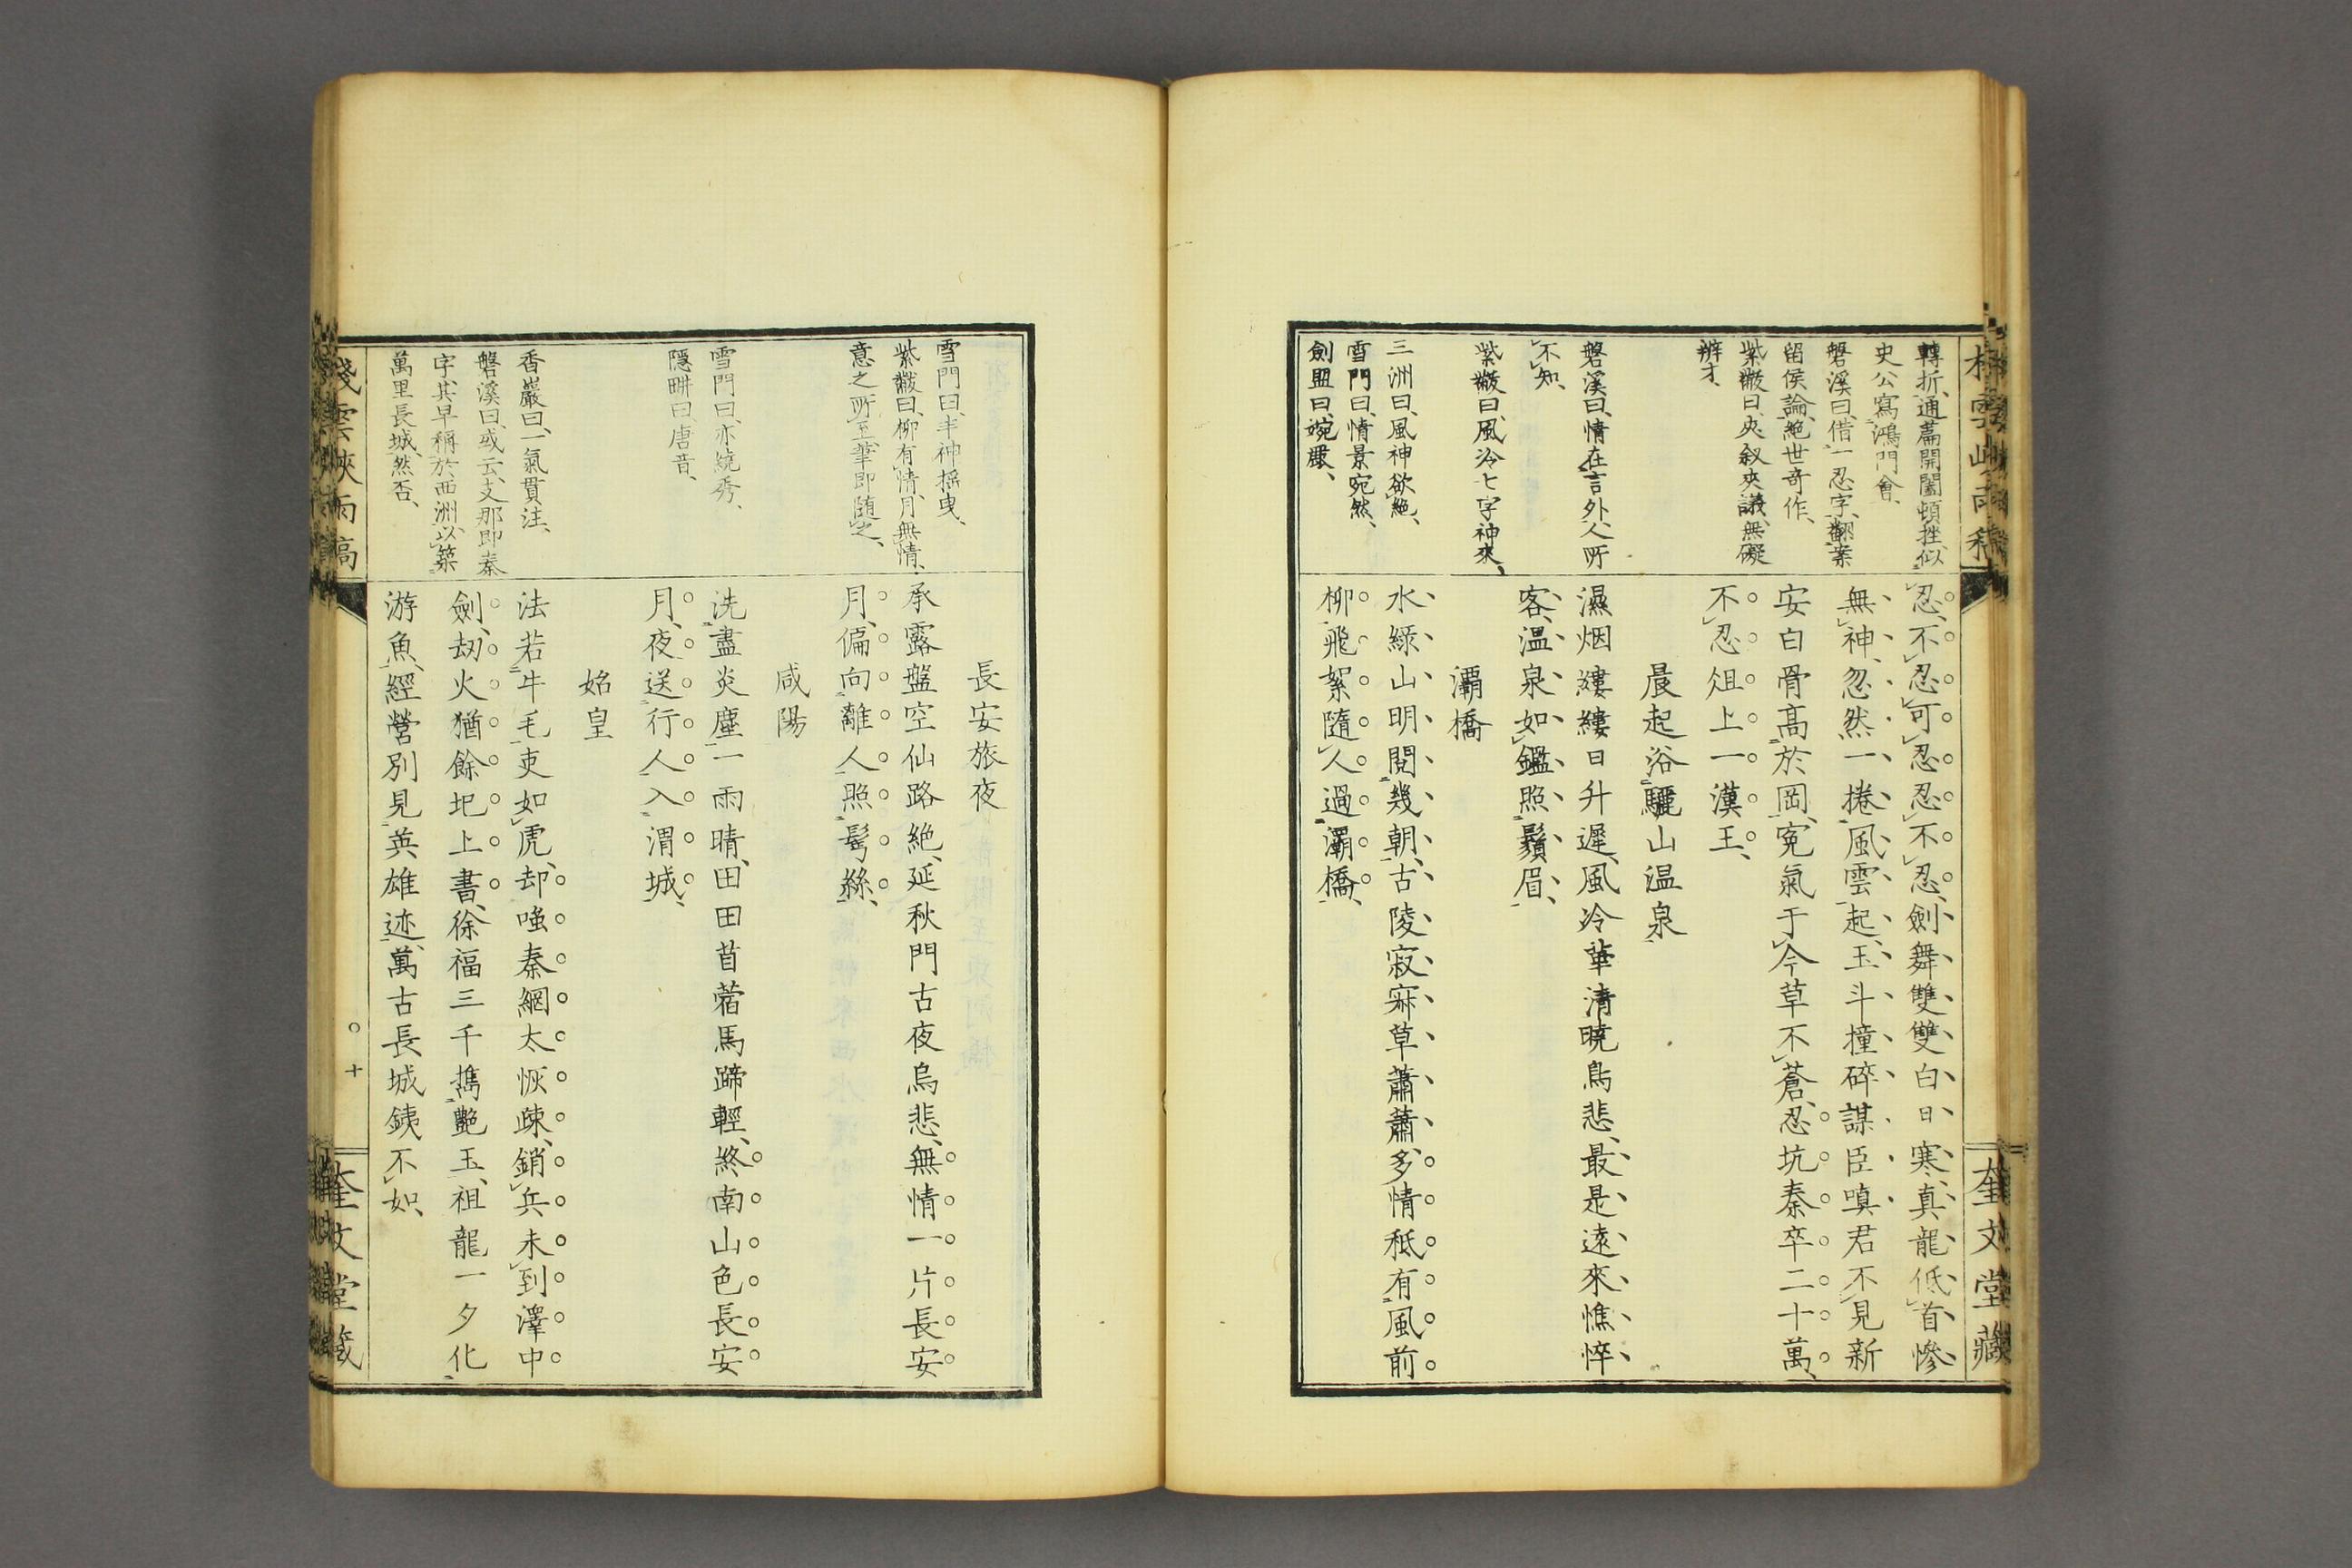 棧雲峽雨稿
奎文堂藏
轉折、通篇開闔頓挫、似
史公寫鴻門會、
磐溪曰、借一忍字、翻案
留侯論、絕世奇作、
紫巌曰、夾敍夾議、無礙
辨才、
磐溪曰、情在言外、人所
不知、
紫巌曰、風冷七字神來、
三洲曰、風神欲絕、
雪門曰、情景宛然、
劍盟曰、婉麗、
忍、不忍、可忍、忍不忍、劍舞雙雙白日寒、真龍低首慘
無神、忽然一捲風雲起、玉斗撞碎謀臣嗔、君不見新
安白骨高於岡、冤氣于今草不蒼、忍坑秦卒二十萬、
不忍俎上一漢王、
晨起浴驪山温泉
濕烟縷縷日升遲、風冷華清曉鳥悲、最是遠來憔悴
客、温泉如鑑照鬚眉、
灞橋
水綠山明閱幾朝、古陵寂寞草蕭蕭、多情秪有風前
柳、飛絮隨人過灞橋、
雪門曰、丰神搖曳、
紫巌曰、柳有情、月無情、
意之所至、筆即隨之、
雪門曰、亦繞秀、
隱畊曰、唐音、
香巖曰、一氣貫注、
磐溪曰、或云、支那即秦
字、其早稱於西洲、以築
萬里長城、然否、
長安旅夜
承露盤空仙路絕、延秋門古夜烏悲、無情一片長安
月、偏向離人照鬢絲、
咸陽
洗盡炎塵一雨晴、田田苜蓿馬蹄輕、終南山色長安
月、夜送行人入渭城、
始皇
法若牛毛吏如虎、却嗤秦網太恢疎、銷兵未到澤中
劍、刼火猶餘圯上書、徐福三千擕艷玉、祖龍一夕化
游魚、經營別見英雄迹、萬古長城銕不如、
棧雲峽雨稿
〇十
奎文堂藏